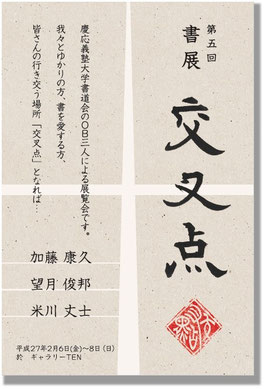 第五回
書展
交叉点
慶応義塾大学書道会のOB三人による展覧会です。
我々とゆかりの方、書を愛する方、
皆さんの行き交う場所「交叉点」となれば…
加藤 康久
望月 俊邦
米川 丈士
平成27年2月6日(金)〜8日(日)
於 ギャラリーTEN